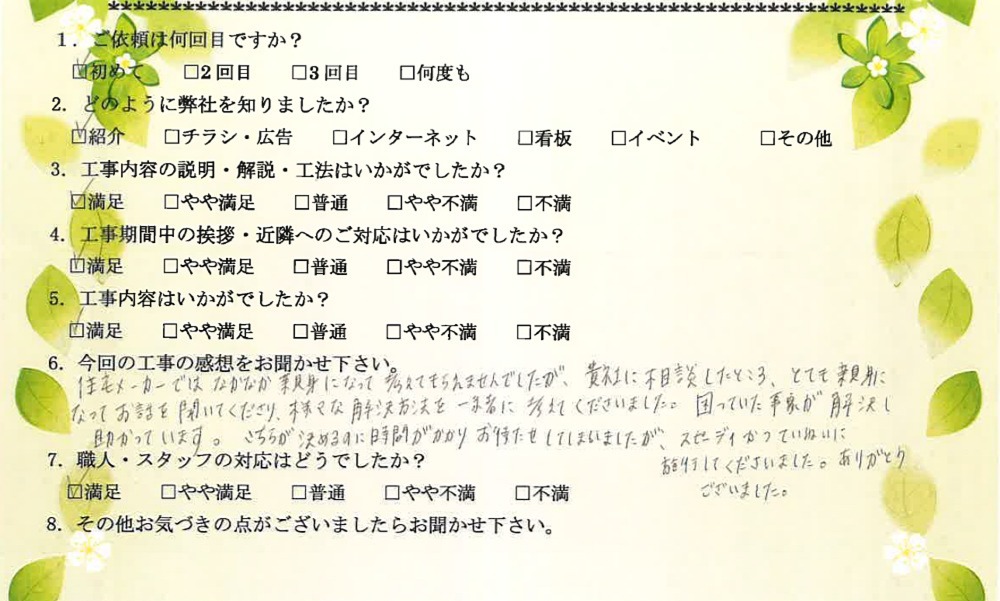 ************************************************************
1．ご依頼は何回目ですか？
☑初めて　□2回目　□3回目　□何度も
2．どのように弊社を知りましたか？
☑紹介　□チラシ・広告　□インターネット　□看板　□イベント　□その他
3．工事内容の説明・解説・工法はいかがでしたか？
☑満足　□やや満足　□普通　□やや不満　□不満
4．工事期間中の挨拶・近隣へのご対応はいかがでしたか？
☑満足　□やや満足　□普通　□やや不満　□不満
5．工事内容はいかがでしたか？
☑満足　□やや満足　□普通　□やや不満　□不満
6．今回の工事の感想をお聞かせ下さい。
住宅メーカーでは なかなか 親身になって 考えてもらえませんでしたが、貴社に相談したところ、とても親身に
なってお話を聞いてくださり、様々な解決方法を一緒に考えてくださいました。困っていた事家が解決し
助かっています。こちらが決めるのに時間がかかりお待たせしてしまいましたが、スピーディかつていねいに
施行してくださいました。ありがとう
ございました。
7．職人・スタッフの対応はどうでしたか？
☑満足　□やや満足　□普通　□やや不満　□不満
8．その他お気づきの点がございましたらお聞かせ下さい。